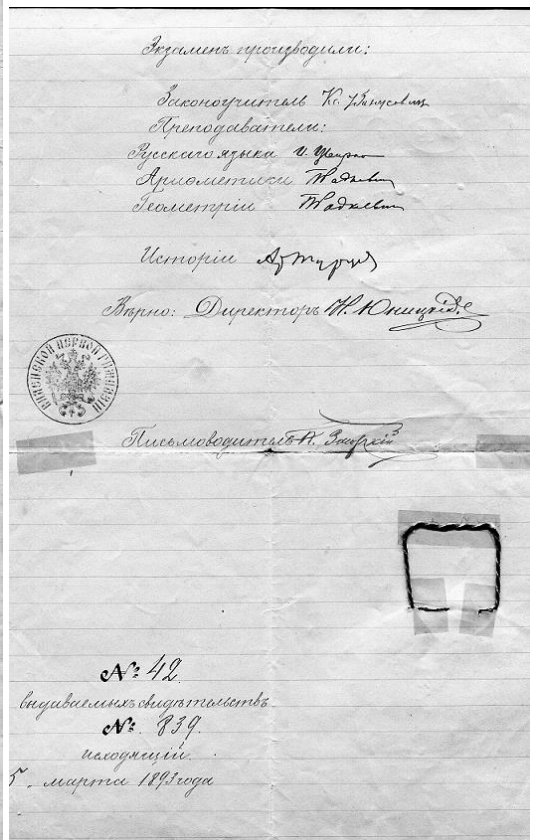 Экзаменъ производили:
Законоучитель Кс.
Преподаватели:
Русскаго языка И.
Ариѳметики
Геометріи
Исторіи
Вѣрно: Директоръ Н. Юницкій
ВИЛЕНСКОЙ ПЕРВОЙ ГИМНАЗІИ
Письмоводитель
№ 42.
выдаваемыхъ свидѣтельствъ.
№. 839.
исходящій.
5. марта 1893 года